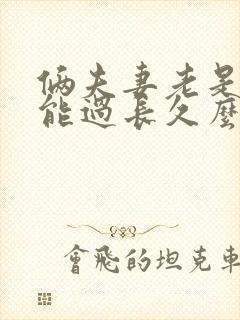 俩夫妻老是
能過長久麼
會飛的坦克車